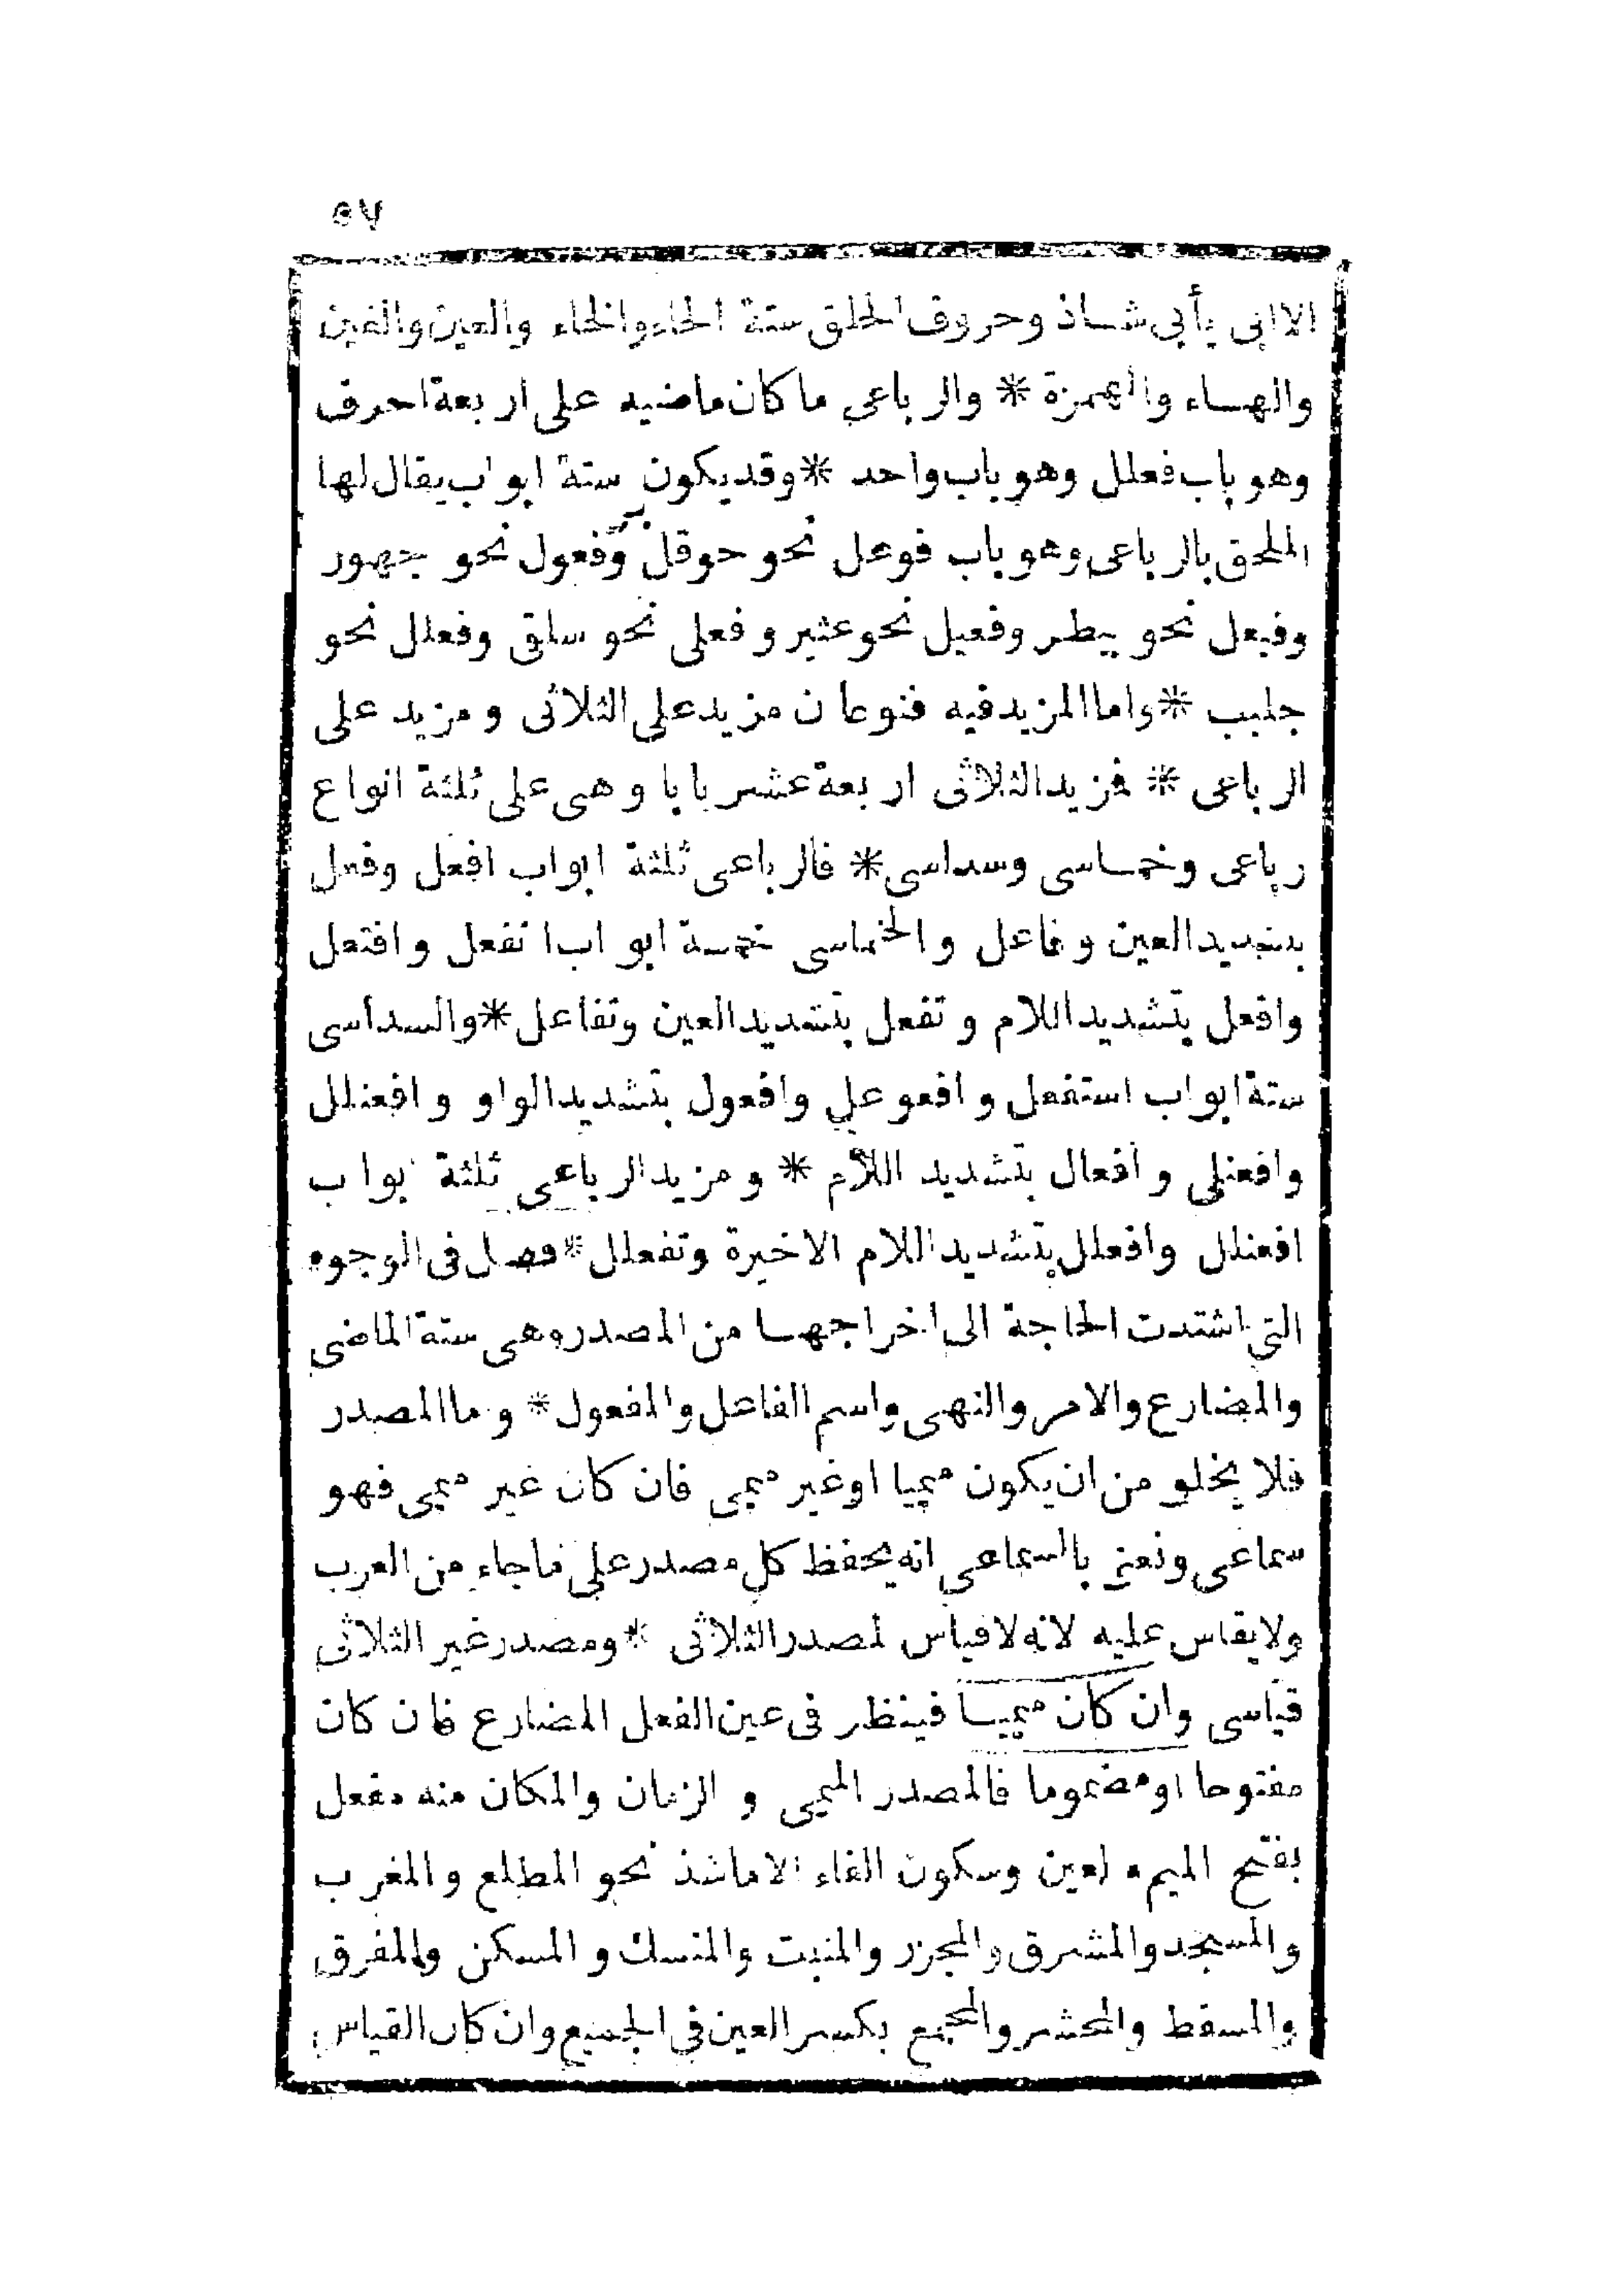 ٥٧
الاابى يأبى شاذ وحروف الحلق ستة الحاء والخاء والعين والغين
والهاء والهمزة * والرباعى ما كان ماضيه على اربعة احرف
وهو باب فعلل وهو باب واحد * وقد يكون ستة ابواب يقال لها
الملحق بالرباعى وهو باب فوعل نحو حوقل وفعول نحو جهور
وفيعل نحو بيطر وفعيل نحو عثير وفعلى نحو سلقى وفعلل نحو
جلبب * واما المزيد فيه فنوعان مزيد على الثلاثى ومزيد على
الرباعى * فمزيد الثلاثى اربعة عشر بابا وهى على ثلثة انواع
رباعى وخماسى وسداسى * فالرباعى ثلثة ابواب افعل وفعل
بتشديد العين وفاعل والخماسى خمسة ابواب انفعل وافتعل
وافعل بتشديد اللام وتفعل بتشديد العين وتفاعل * والسداسى
ستة ابواب استفعل وافعوعل وافعول بتشديد الواو وافعنلل
وافعنلى وافعال بتشديد اللام * ومزيد الرباعى ثلثة ابواب
افعنلل وافعلل بتشديد اللام الاخيرة وتفعلل * فصل فى الوجوه
التى اشتدت الحاجة الى اخراجها من المصدر وهى ستة الماضى
والمضارع والامر والنهى واسم الفاعل والمفعول * وما المصدر
فلا يخلو من ان يكون ميميا اوغير ميمى فان كان غير ميمى فهو
سماعى ونعنى بالسماعى انه يحفظ كل مصدر على ماجاء من العرب
ولايقاس عليه لانه لاقياس لمصدر الثلاثى * ومصدر غير الثلاثى
قياسى وان كان ميميا فينظر فى عين الفعل المضارع فان كان
مفتوحا او مضموما فالمصدر الميمى و الزمان والمكان منه مفعل
بفتح الميم والعين وسكون الفاء الا ماشذ نحو المطلع والمغرب
والمسجد والمشرق والمجزر والمنبت والمنسك والمسكن والمفرق
والمسقط والمحشر والمجمع بكسر العين فى الجميع وان كان القياس